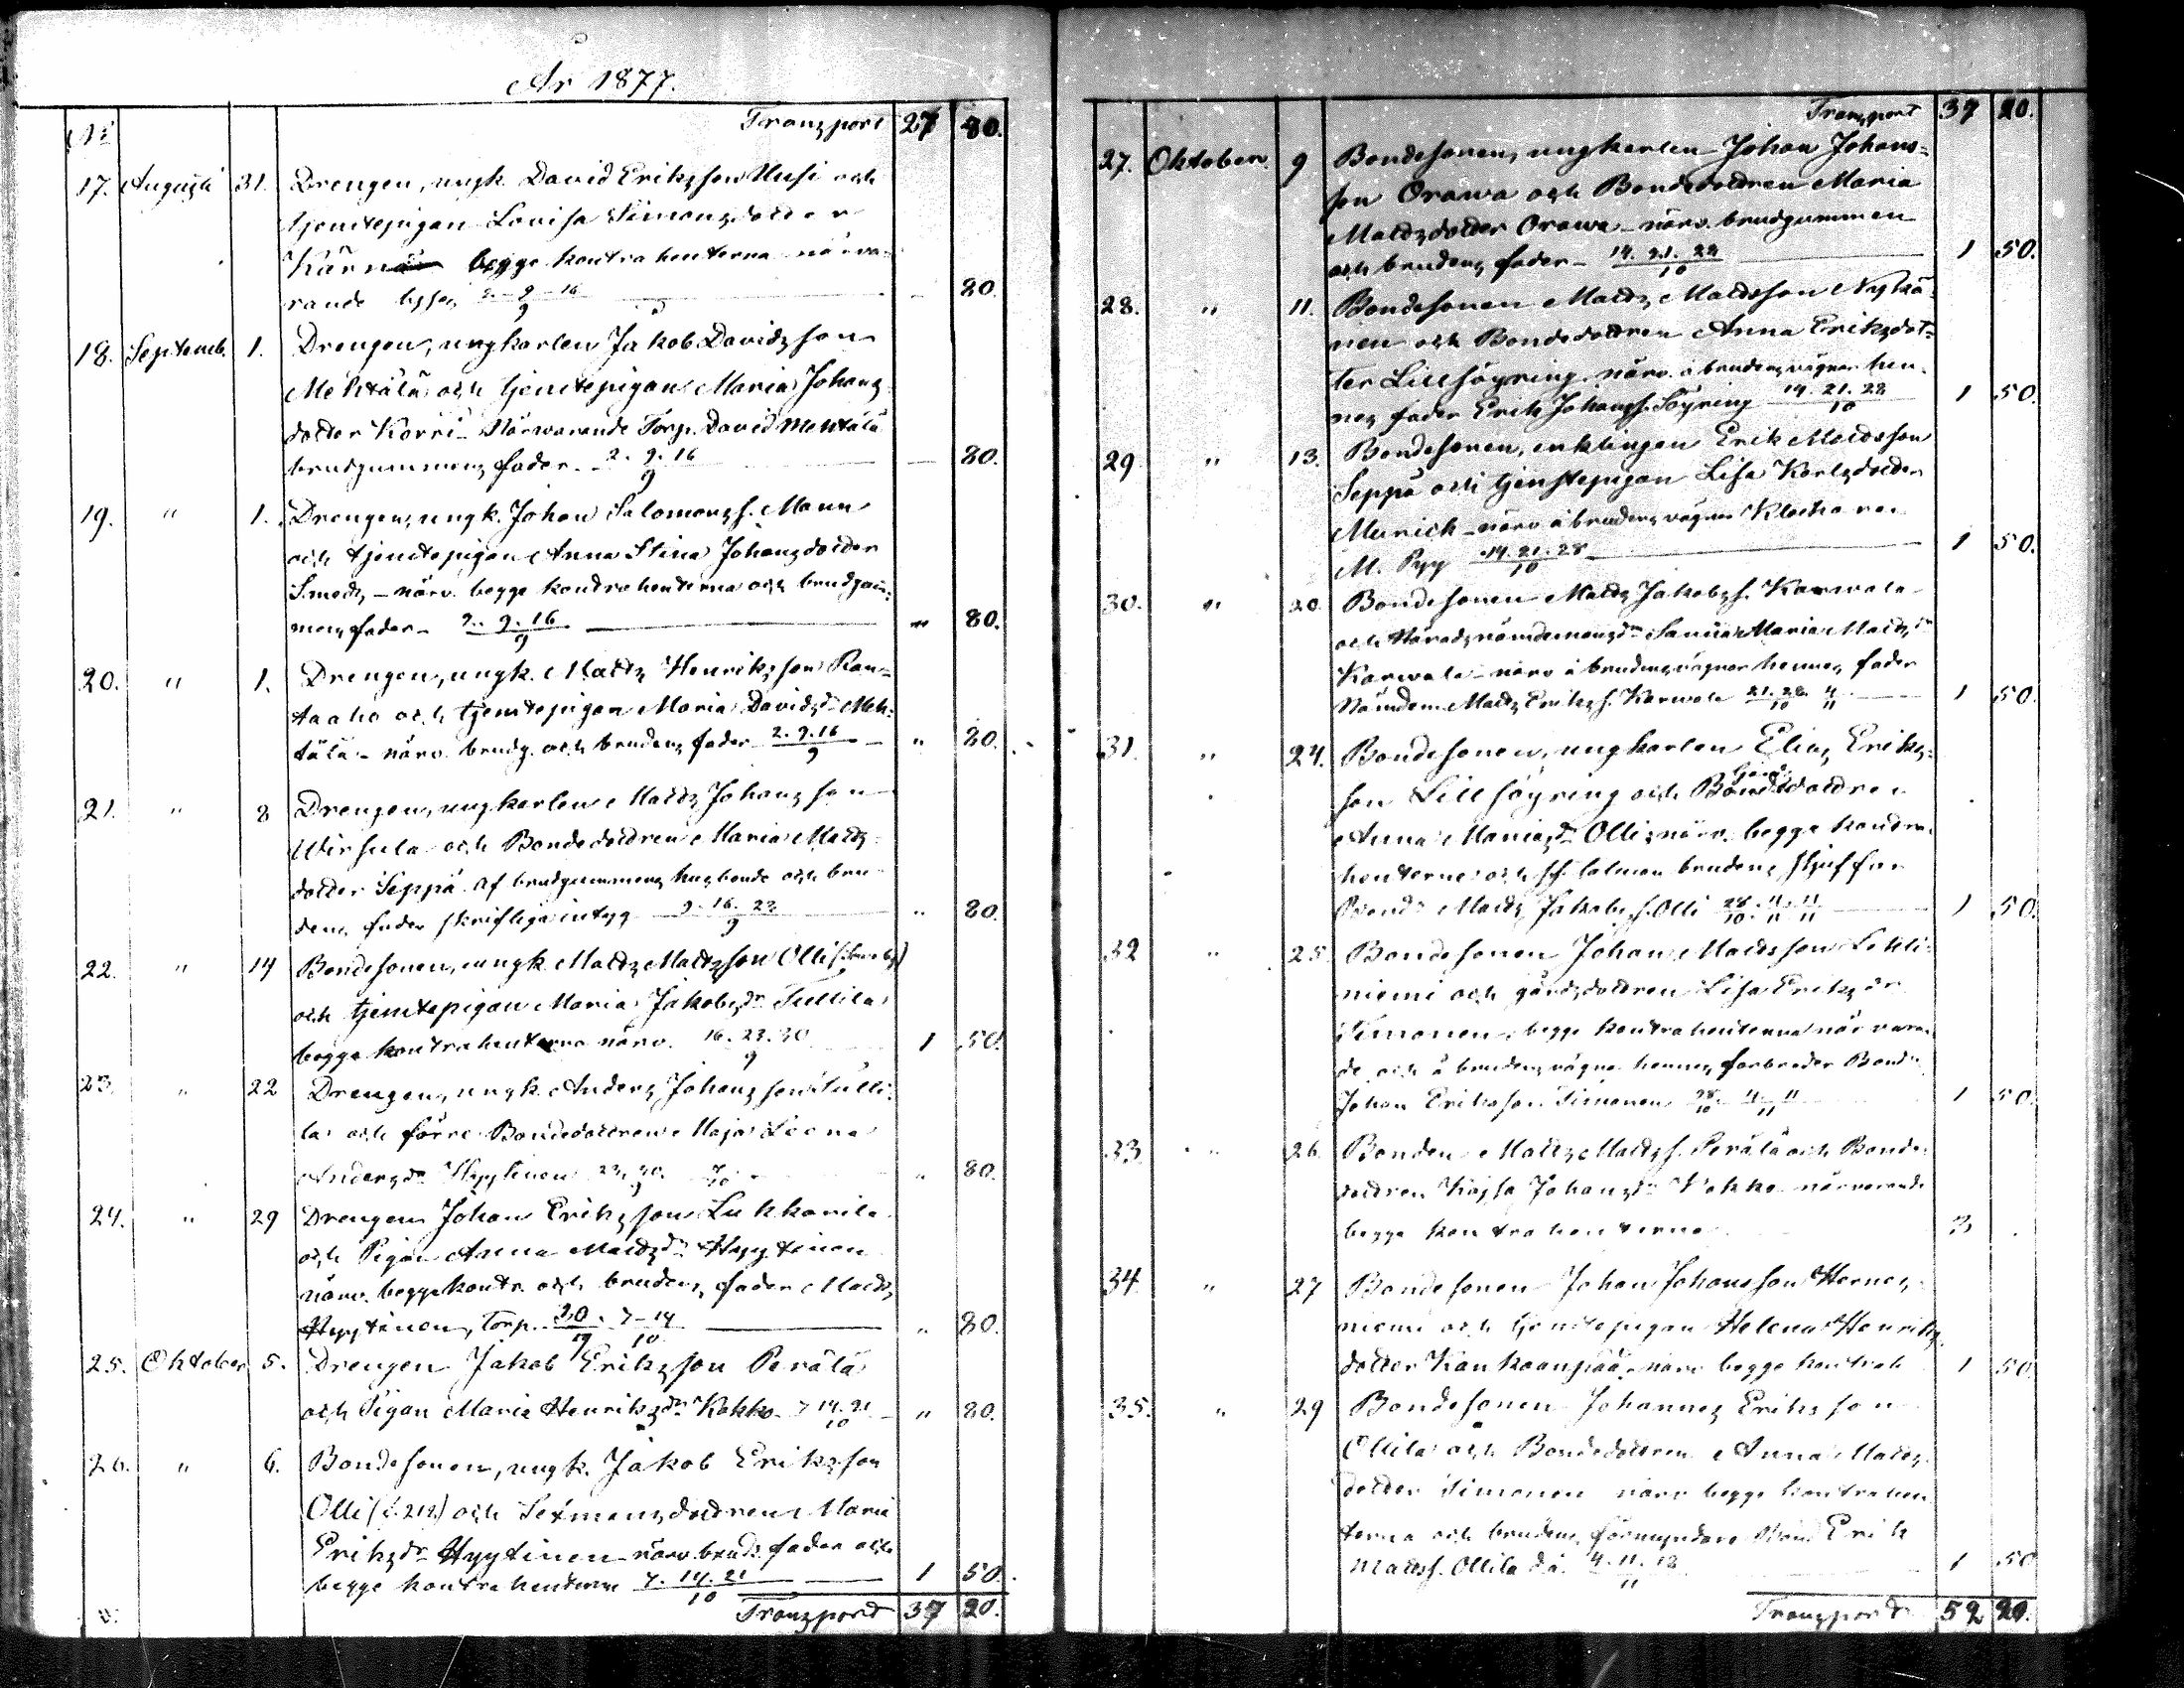 År 1877.
No Transport 27 80.
17. Augusti 31. Drengen, ungk. David Eriksson Uusi och
tjenstepigan Lovisa Simonsdotter
Kärnä begge kontrahenterna närva-
rande 2-9-16/9 - 80.
18. Septemb. 1. Drengen, ungkarlen Jakob Davidsson
Mehtälä och tjenstepigan Maria Johans
dotter Korri - Närwarande Torp. David Mehtälä
brudgummens fader. 2. 9. 16/9 - 80.
19. " 1. Drengen, ungk. Johan Salomons s. Mann
och tjenstepigan Anna Stina Johansdotter
Smeds - närv. begge kontrahenterna och brudgum-
mens fader - 2. 9. 16/9 " 80.
20. " 1. Drengen, ungk. Matts Henriksson Ran-
taaho och tjenstepigan Maria Davidsdr Meh-
tälä - närv. brudg. och brudens fader 2. 9. 16/9 " 80.
21. " 8 Drengen, ungkarlen Matts Johansson
Wirsula och Bondedottren Maria Matts
dotter Seppä af brudgummens husbonde och bru-
dens fader skriftliga intyg 9. 16. 23/9 " 80.
22. " 14 Bondesonen, ungk. Matts Mattsson Olli
och tjenstepigan Maria Jakobsdr Tullila
begge kontrahenterna närv. 16. 23. 30/9 1 50.
23. " 22 Drengen, ungk. Anders Johansson Tulli-
la och förre Bondedottren Maja Leena
Andersdr Hyytinen 23. 30./9 7/10 " 80.
24. " 29 Drengen Johan Eriksson Lukkarila
och Pigan Anna Mattsdr Hyytinen
närv. begge kontr. och brudens fader Matts
Hyytinen, Torp. 30/9 7-14/10 " 80.
25. Oktober 5. Drengen Jakob Eriksson Perälä
och Pigan Maria Henriksdr Kokko 7 14. 21/10 " 80.
26. " 6. Bondesonen, ungk. Jakob Eriksson
Olli och Sexmansdottren Maria
Eriksdr Hyytinen närv. bruds fader och
begge kontrahenterne 7. 14. 21/10 1 50.
Transport 37 20.
Transport 37 20.
27. Oktober 9 Bondesonen, ungkarlen Johan Johans-
son Orawa och Bondedottren Maria
Mattsdotter Orawa - närv. brudgummen
och brudens fader - 14. 21. 28/10 1 50.
28. " 11. Bondesonen Matts Mattsson Nykä-
nen och Bondedottren Anna Eriksdot-
ter Lillsöyring. närv. å brudens vägnar hen-
nes fader Erik Johans s. Söyring 14. 21. 28/10 1 50.
29 " 13. Bondesonen, enklingen Erik Mattsson
Seppä och tjenstepigan Lisa Karlsdotter
Munich - närv. å brudens vägnar Klockaren
M. Pyy 14. 21. 28/10 1 50.
30. " 20. Bondesonen Matts Jakobs s. Karwala
och Häradsnämdemansdr Sanna Maria Mattsdr
Karwala - närv. å brudens vägnar hennes fader
Nämdem. Matts Eriks s. Karwala 21. 28/10 4/11 1 50.
31. " 24. Bondesonen, ungkarlen Elias Eriks-
son Lillsöyring och Bondedottren
Anna Mariasdr Olli, närv. begge kontra-
henterne och brudens styffar
Bond. Matts Jakobs s. Olli 28/10. 4/11. 11/11 1 50.
32 " 25 Bondesonen Johan Mattsson Lehti-
niemi och gårdsdottren Lisa Eriksdr
Timonen, begge kontrahenterna närvaran-
de och å brudens vägnar hennes farbroder Bond.
Johan Eriksson Timonen 28/10 4 11/11 1 50.
33 " 26 Bonden Matts Matts s. Perälä och Bonde-
dottren Kajsa Johansdr Kokko närvarande
begge kontrahenterne 3
34 " 27 Bondesonen Johan Johansson Hernes-
niemi och tjenstepigan Helena Henriks
dotter Kankaanpää närv. begge kontrah. 1 50.
35. " 29 Bondesonen Johannes Eriksson
Ollila och Bondedottren Anna Matts
dotter Timonen närv. begge kontrahen-
terna och brudens förmyndare Bond. Erik
Matts s. Ollila 4. 11. 18/11 1 50
Transport 52 20.